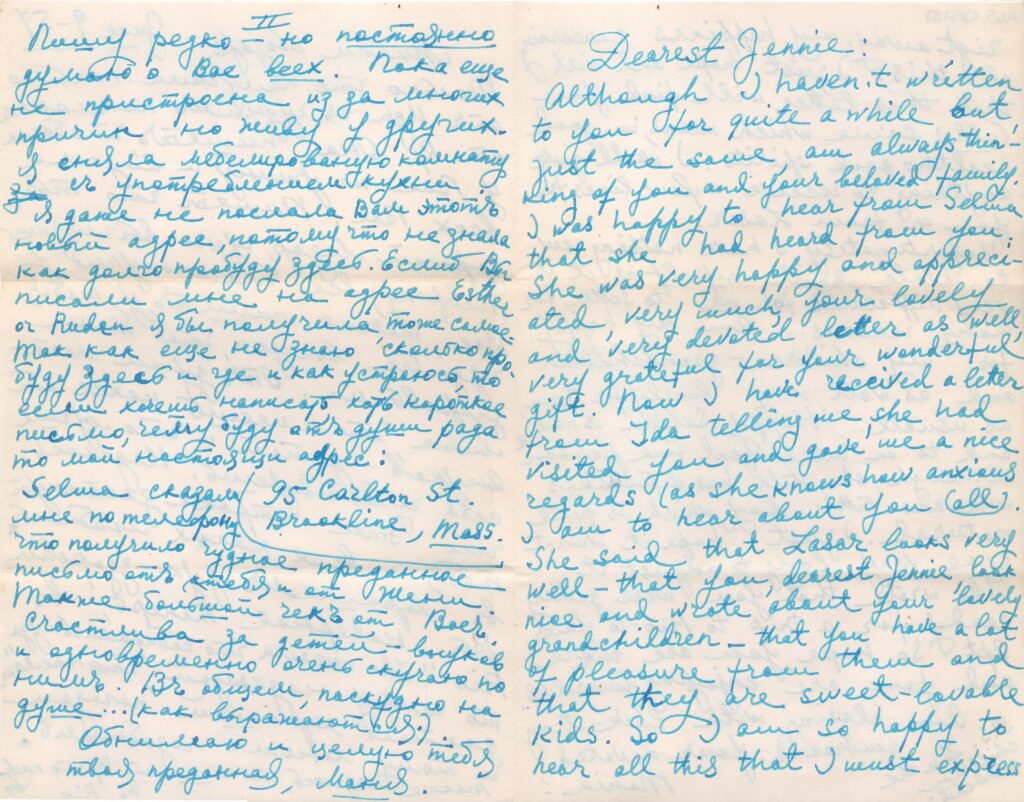 II
Пишу редко – но постоянно
думаю о Вас всех. Пока еще
не пристроена из за многих
причин но живу у других.
Я сняла мебелированую комнату
съ употреблением кухни.
Я даже не послала Вам этотъ
новый адрес, потому что не знала
как долго пробуду здесь. Если б Вы
писали мне на адрес Esther
or Ruden я бы получила, тоже самое.
Так как еще не знаю, сколько про-
буду здесь и где и как устроюсь, то
если хочешь написать хоть короткое
письмо, чему буду отъ души рада
то мой настоящи адрес:
95 Carlton St.
Brookline, Mass.
Selma сказала
мне по телефону
что получило чудное преданное
письмо отъ тебя и от Жени.
Также большой чекъ от Васъ.
Счастлива за детей – внуков
и одновременно очень скучаю по
нимъ. Въ общем, паскудно на
душе... (как выражаются).
Обнимаю и целую тебя
твоя преданная, Маня.
Dearest Jennie:
Although I haven.t written
to you for quite a while but,
just the same am always thin-
king of you and your beloved family.
I was happy to hear from Selma
that she had heard from you:
She was very happy and appreci-
ated, very much, your lovely
and very devoted letter as well,
very grateful for your wonderful
gift. Now I have recived a letter
from Ida telling me, she had
visited you and gave me a nice
regards (as she knows how anxious
I am to hear about you (all).
She said that Lasar looks very
well – that you, dearest Jennie, look
nice and wrote about your lovely
grandchildren – that you have a lot
of pleasure from them and
that they are sweet-lovable
kids. So I am so happy to
hear all this that I must express